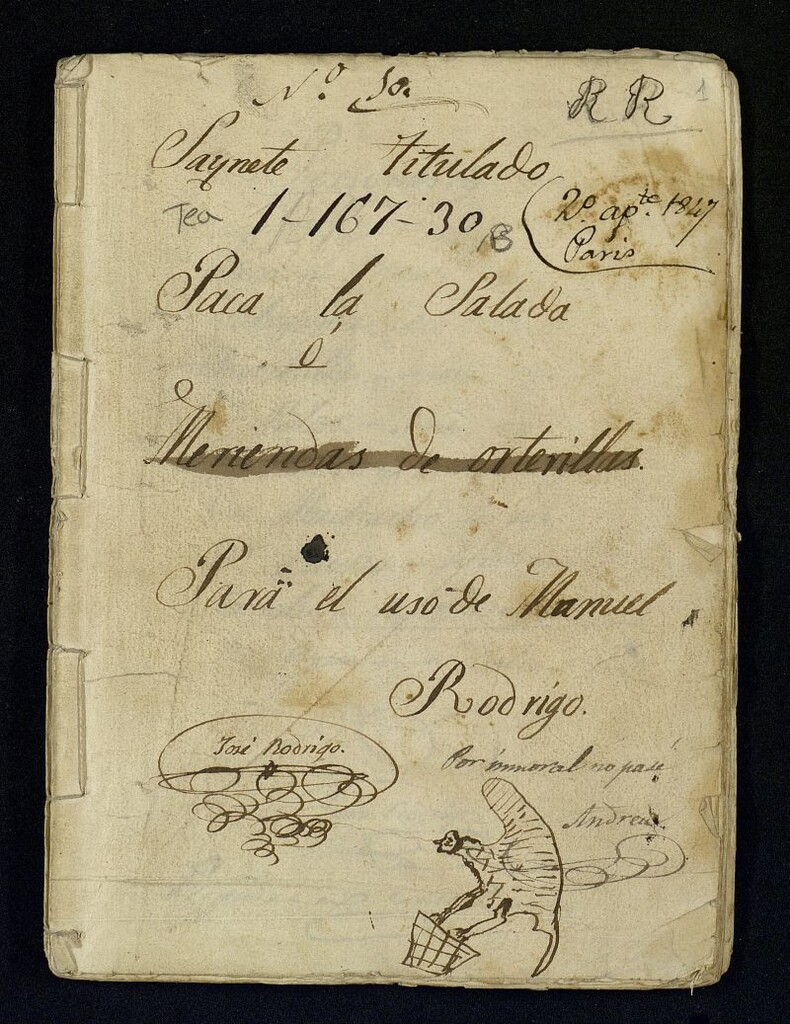 Nº 50.
R R
1
Saynete titulado
Tea 1-167-30, B
2º. apte. 1847
Paris
Paca la Salada
ó
Meriendas de orterillas.
Para el uso de Manuel
Rodrigo.
José Rodrigo.
Por inmoral no pase
Andreu.